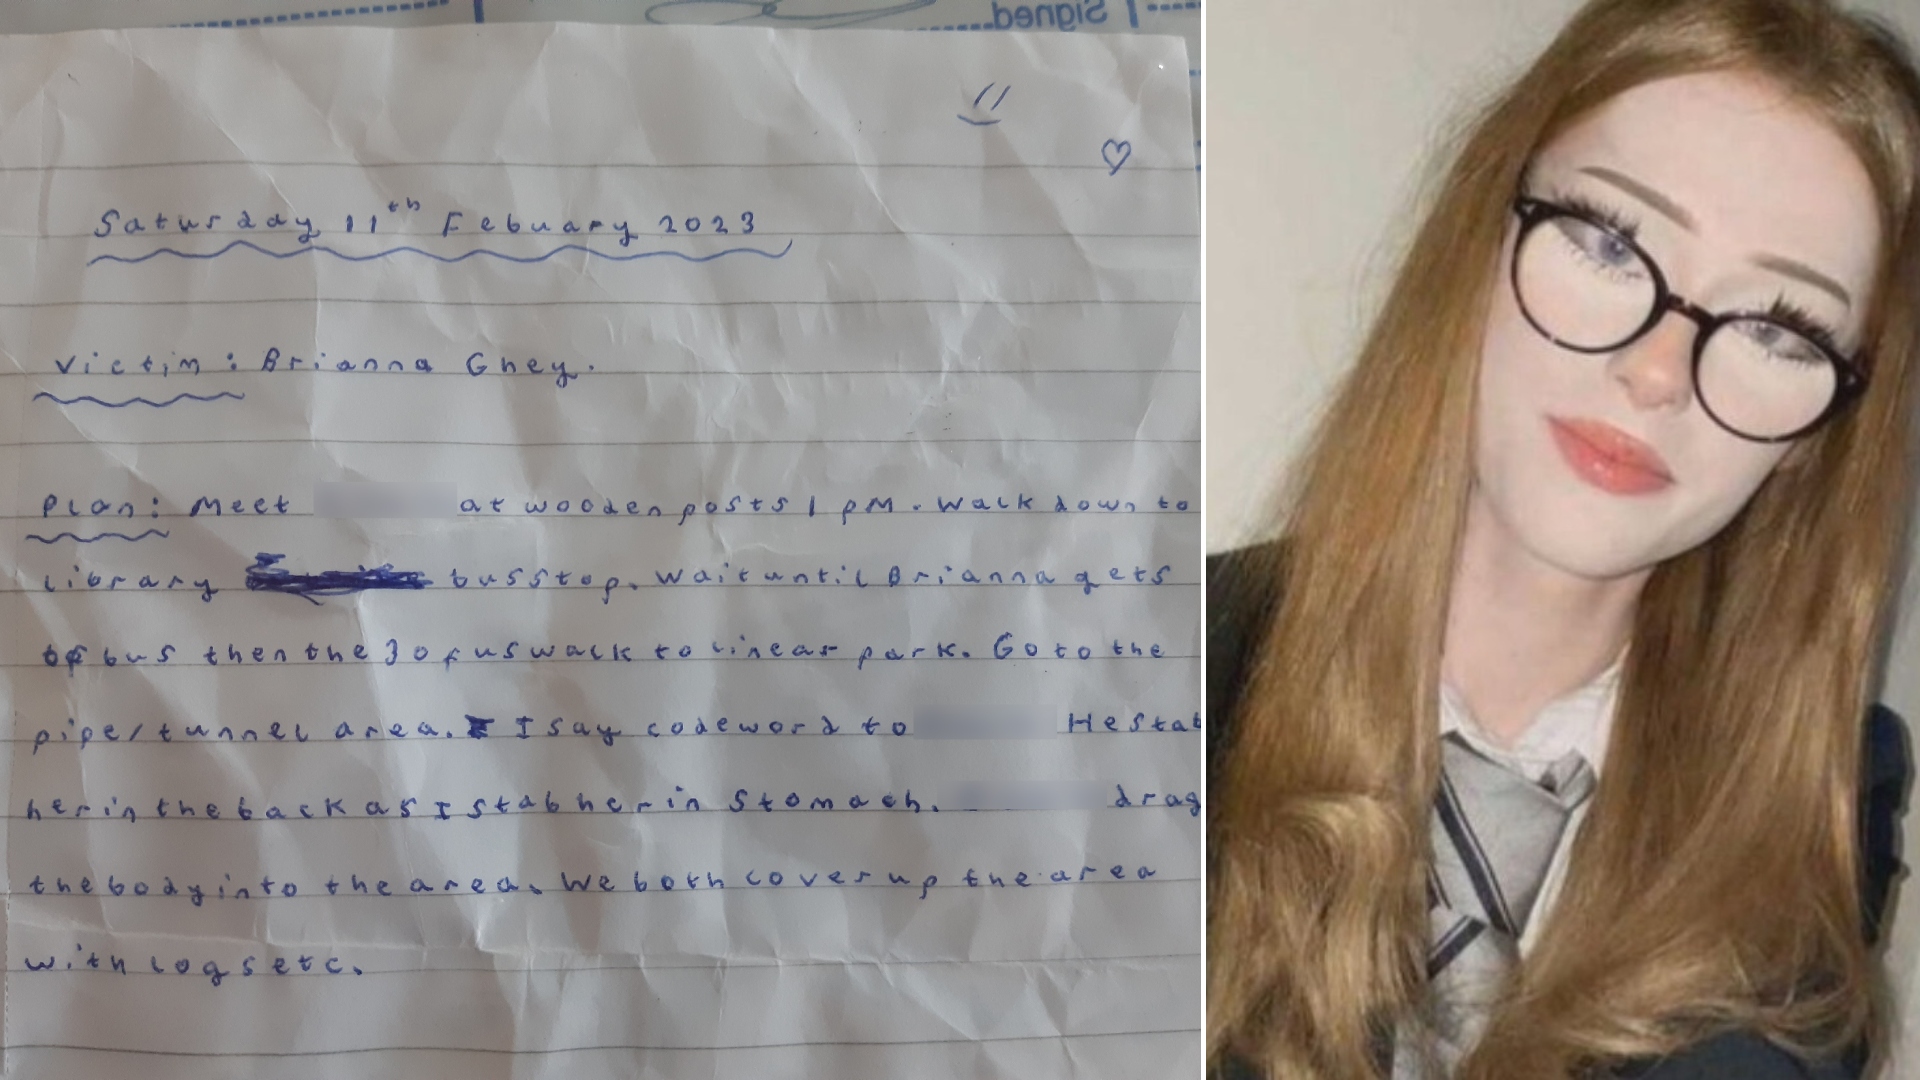 Signed
Saturday 11th Febuary 2023
Victim: Brianna Ghey.
Plan: Meet at wooden posts 1 pM. Walk down to
library bus stop. Wait until Brianna gets
of bus then the 3 of us walk to linear park. Go to the
pipe/tunnel area. I say codeword to He stab
her in the back as I stab her in stomach. drag
the body into the area. We both cover up the area
with logs etc.